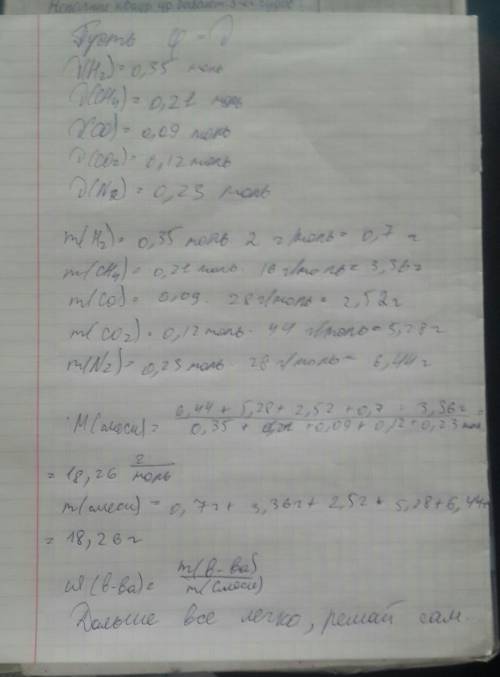 Пусть φ = ν
ν(H₂) = 0,35 моль
ν(CH₄) = 0,21 моль
ν(CO) = 0,09 моль
ν(CO₂) = 0,12 моль
ν(N₂) = 0,23 моль
m(H₂) = 0,35 моль · 2 г/моль = 0,7 г
m(CH₄) = 0,21 моль · 16 г/моль = 3,36 г
m(CO) = 0,09 · 28 г/моль = 2,52 г
m(CO₂) = 0,12 моль · 44 г/моль = 5,28 г
m(N₂) = 0,23 моль · 28 г/моль = 6,44 г
M(смеси) = (6,44 + 5,28 + 2,52 + 0,7 + 3,36 г) / (0,35 + 0,21 + 0,09 + 0,12 + 0,23 моль) =
= 18,26 г/моль
m(смеси) = 0,7 г + 3,36 г + 2,52 + 5,28 + 6,44 г
= 18,26 г
W(в-ва) = m(в-ва) / m(смеси)
Дальше все легко, решай сам.